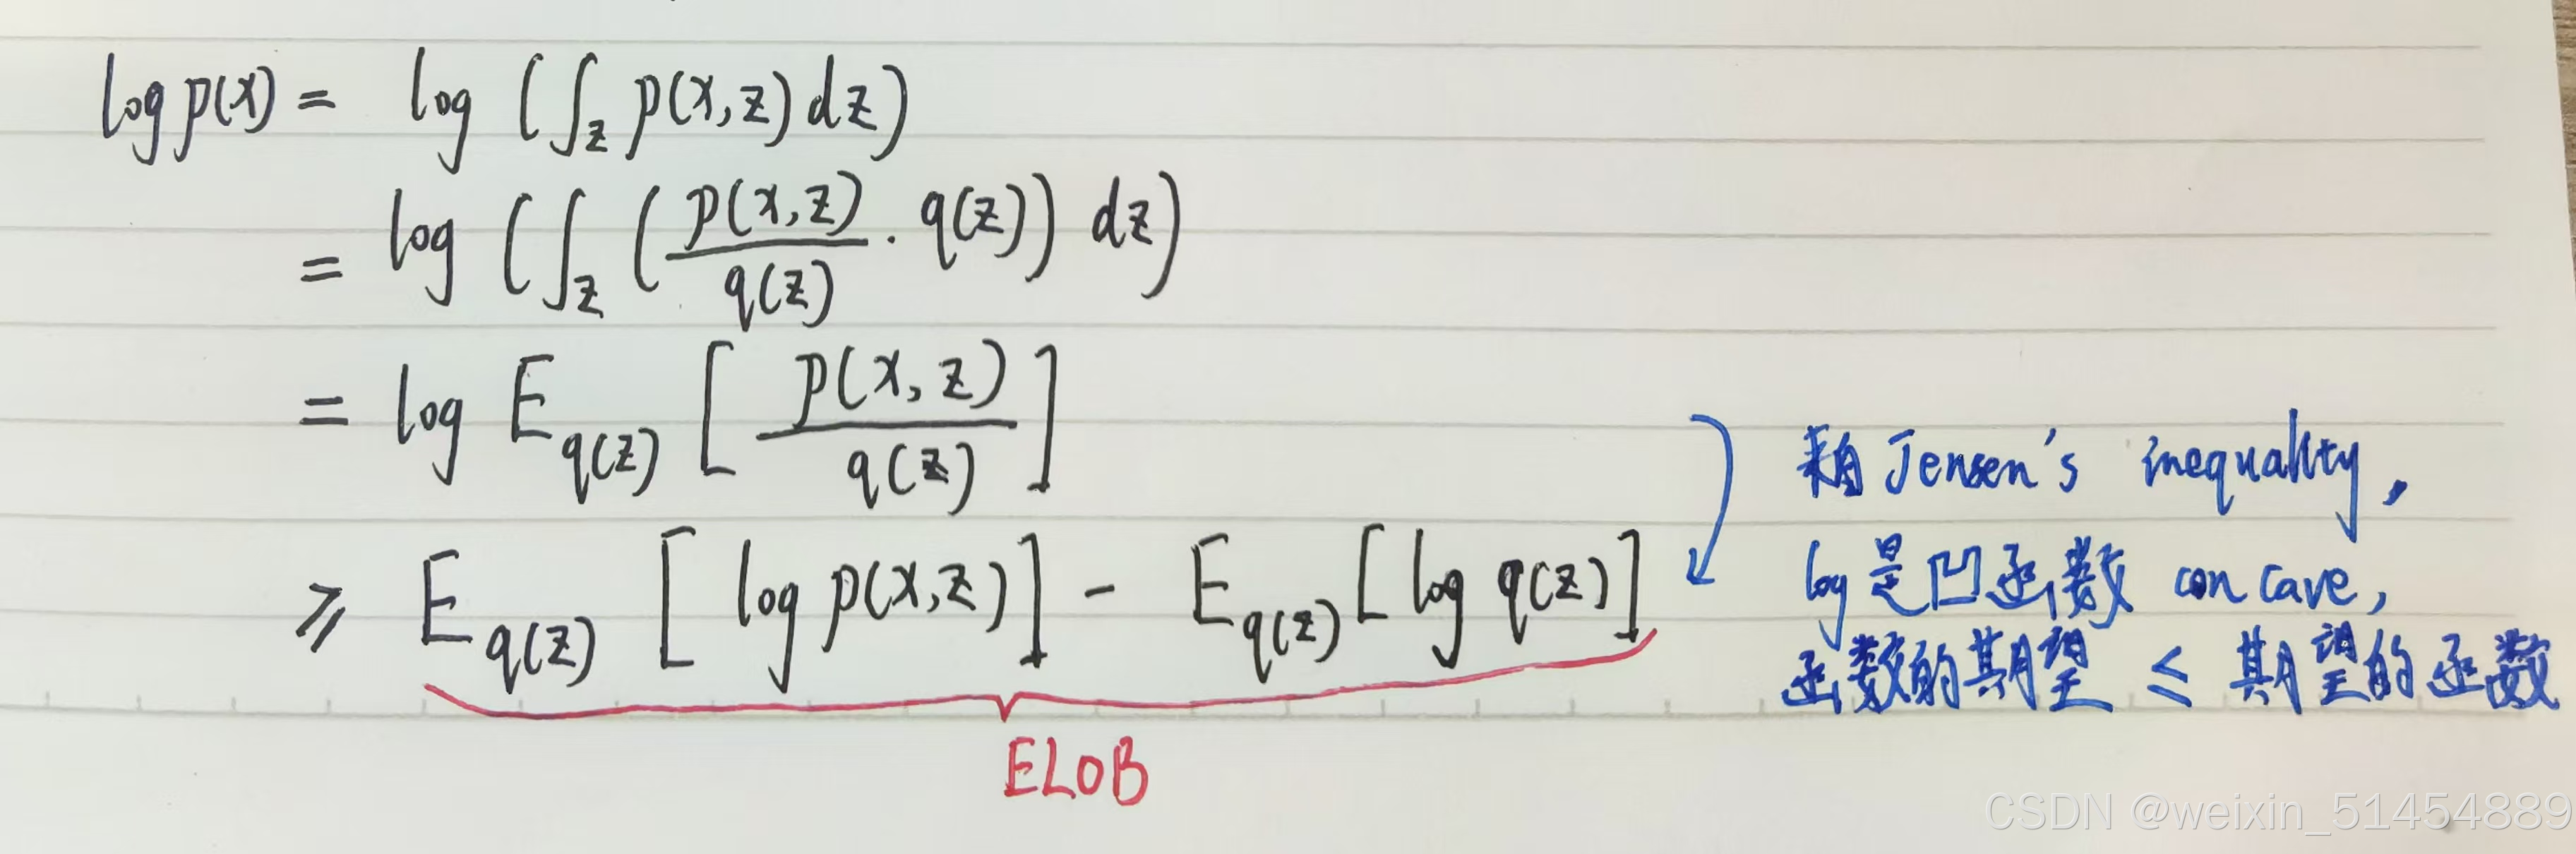 log p(x) = log (∫_z p(x,z) dz)
= log (∫_z (p(x,z)/q(z) · q(z)) dz)
= log E_q(z) [p(x,z)/q(z)]
≥ E_q(z) [log p(x,z)] - E_q(z) [log q(z)]
ELOB
来自 Jensen's inequality,
log是凹函数 concave,
函数的期望 ≤ 期望的函数
CSDN @weixin_51454889